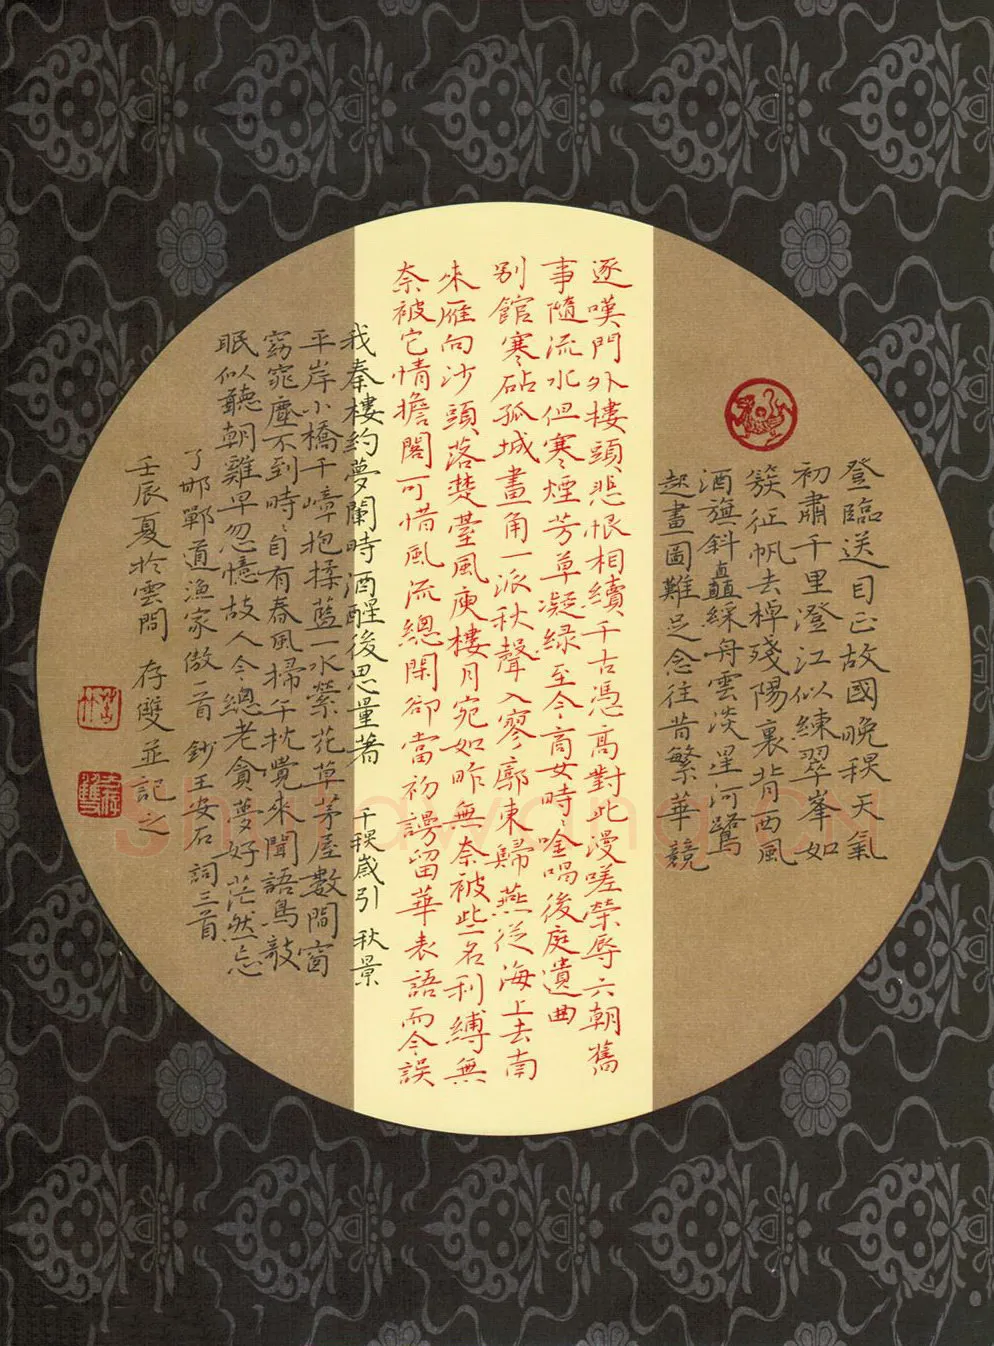 登臨送目正故國晚秋天氣
初肅千里澄江似練翠峯如
簇征帆去棹殘陽裏背西風
酒旗斜矗綵舟雲淡星河鷺
起畫圖難足念往昔繁華競
逐嘆門外樓頭悲恨相續千古馮高對此漫嗟榮辱六朝舊
事隨流水但寒煙芳草凝緑至今商女時時唫唱後庭遺曲
别館寒砧孤城畫角一派秋聲入寥廓東歸燕從海上去南
來雁向沙頭落楚臺風庾樓月宛如昨無奈被些名利縛無
奈被它情擔閣可惜風流總閑卻當初謾留華表語而今誤
我秦樓約夢闌時酒醒後思量著 千秋歲引 秋景
平岸小橋千嶂抱揉藍一水縈花草茅屋數間窗
窈窕塵不到時時自有春風掃午枕覺來聞語鳥敧
眠似聽朝雞早忽憶故人今總老貪夢好茫然忘
了邯鄲道漁家傲一首 鈔王安石詞三首
壬辰夏於雲間 存雙並記之
Shufawang.CN